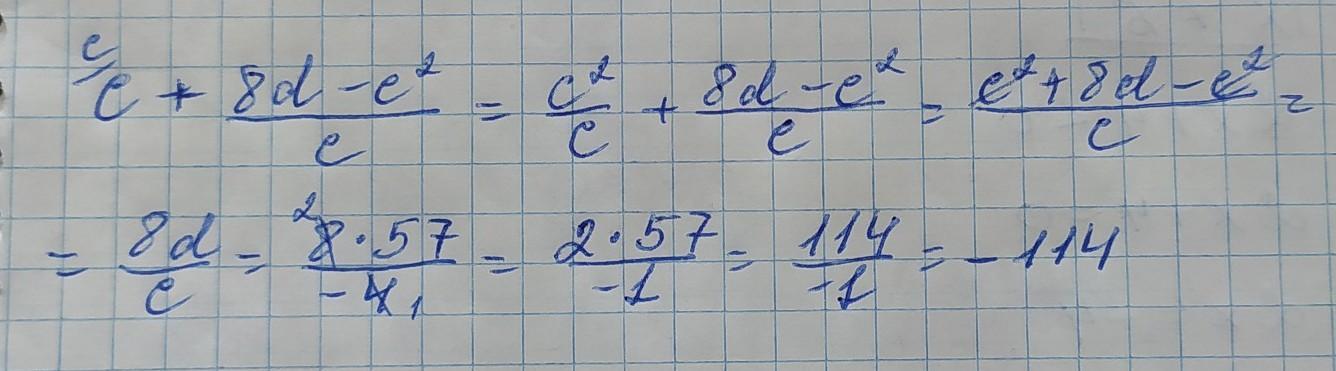 c/c + (8d - c²)/c = c²/c + (8d - c²)/c = (c² + 8d - c²)/c =
= 8d/c = ²8·57/-4₁ = 2·57/-1 = 114/-1 = -114